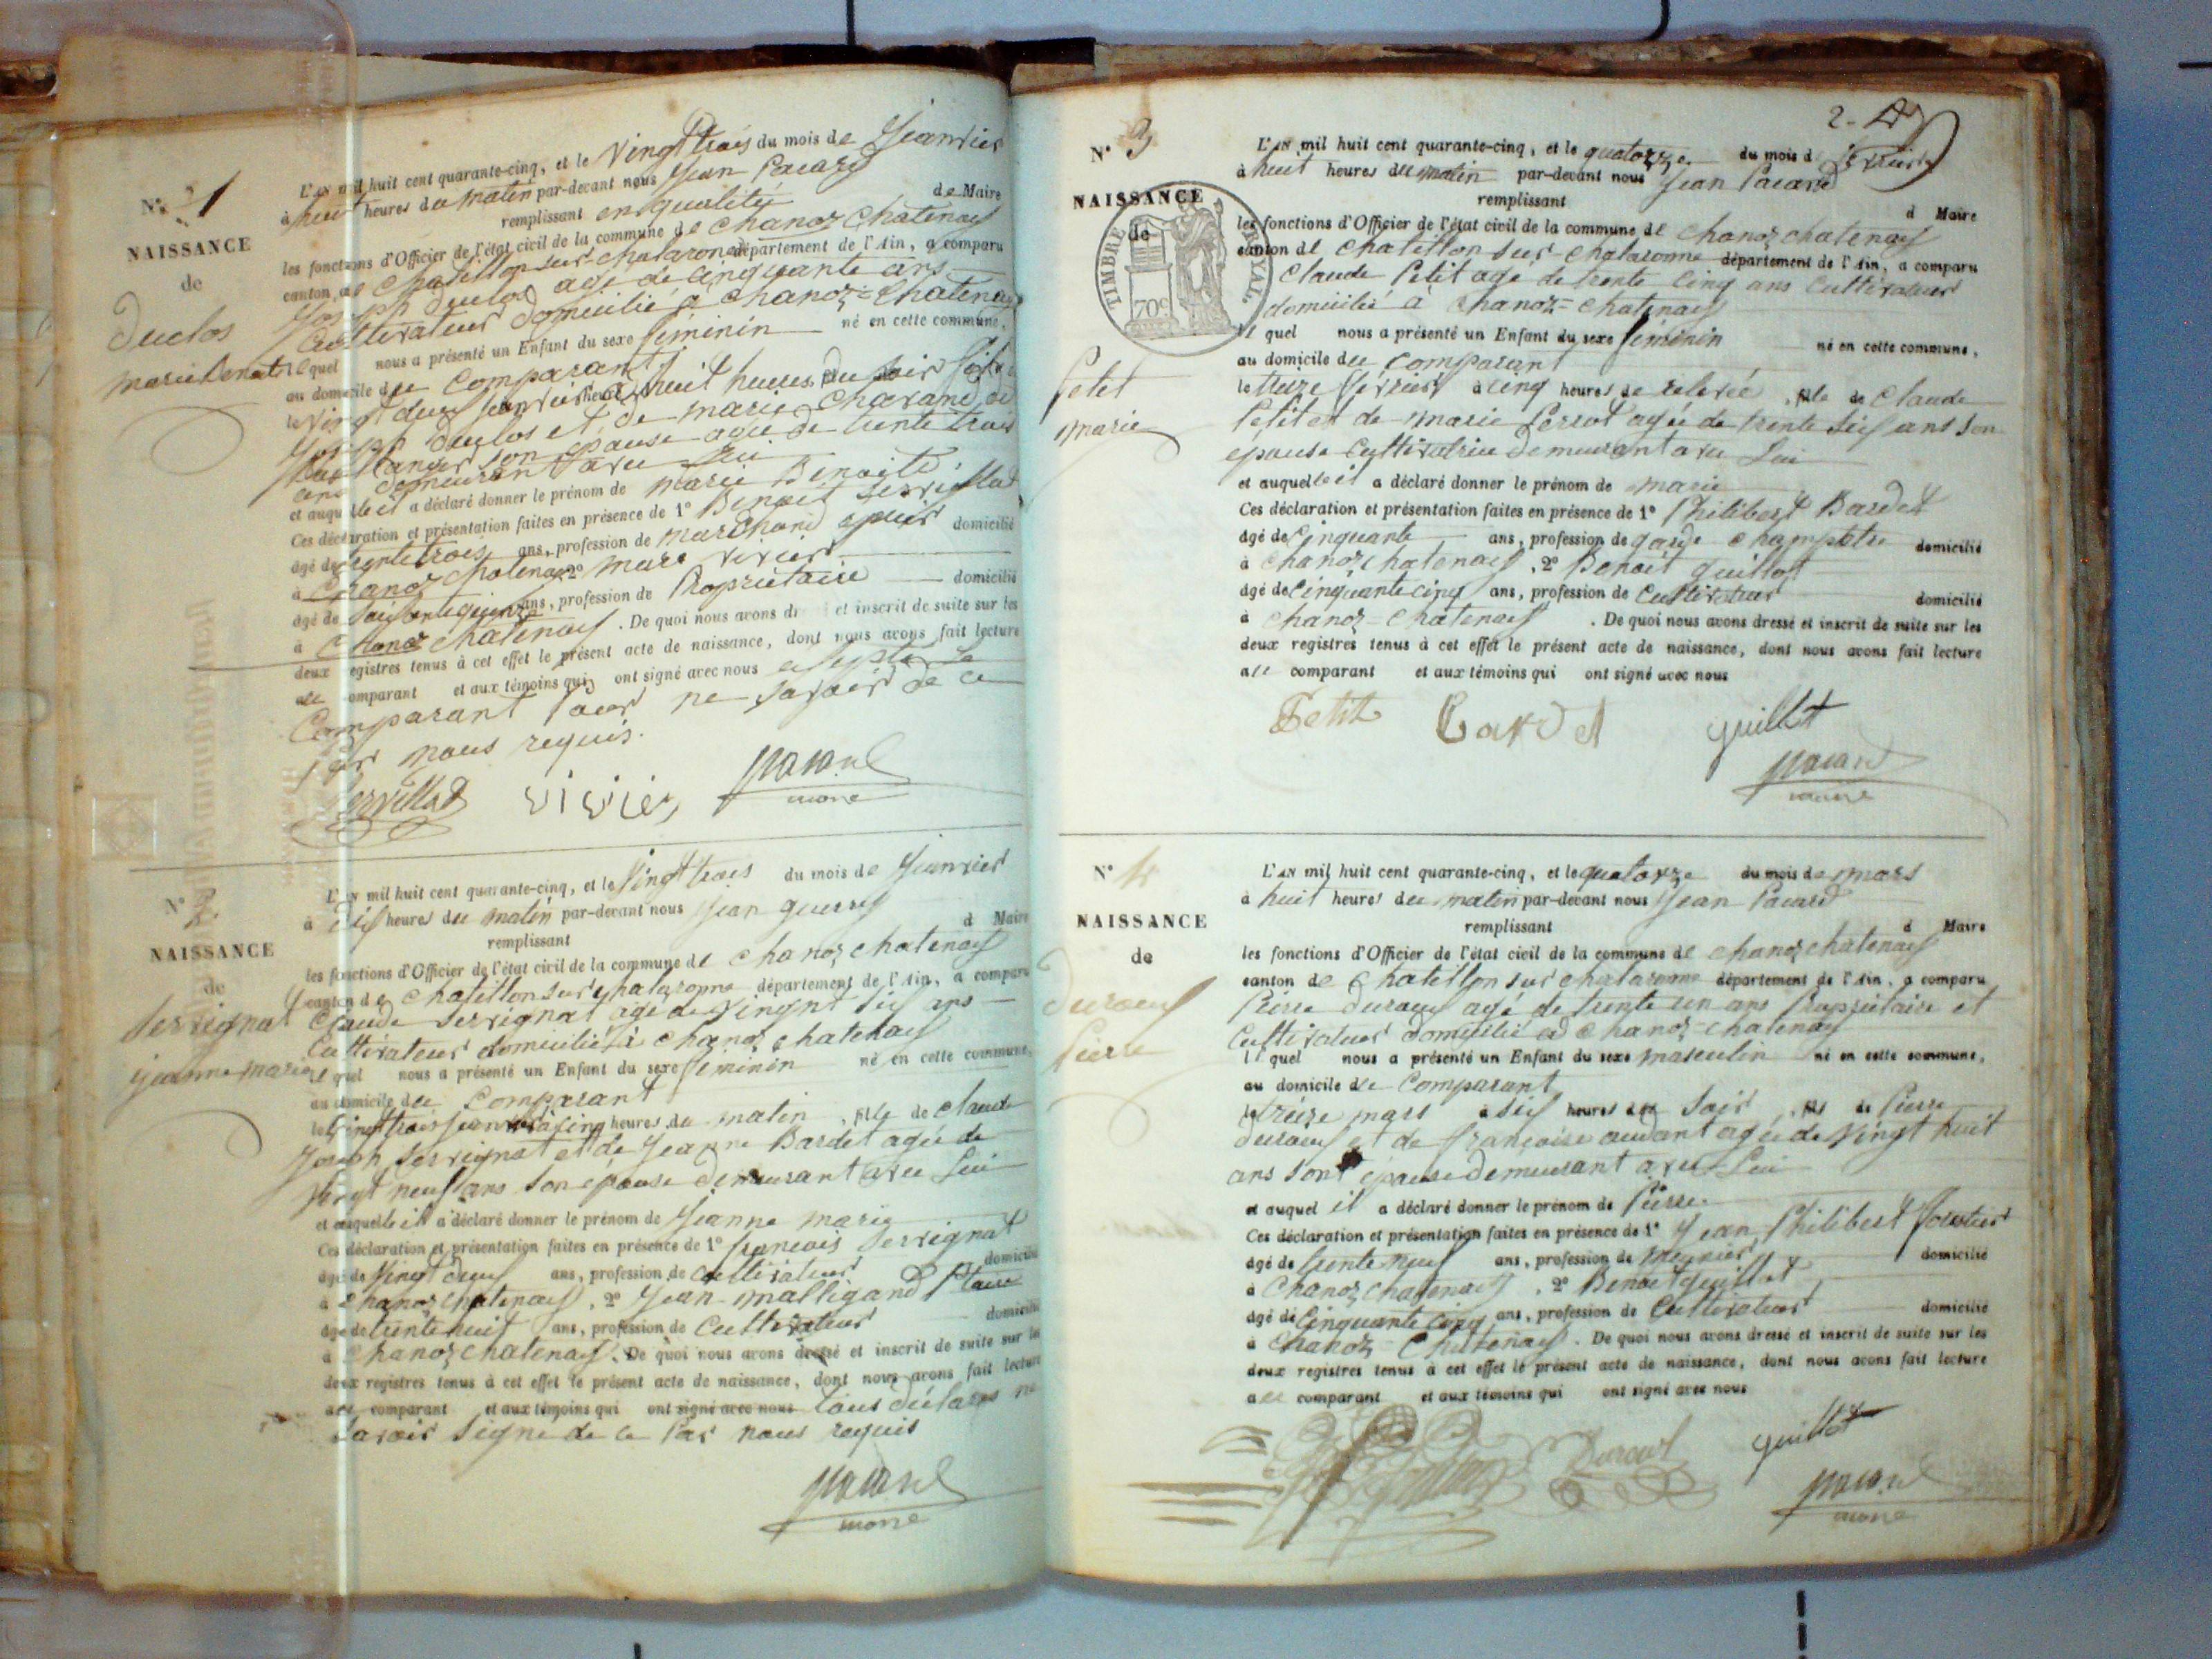 N° 1
NAISSANCE
de
Duclos
marie Benoite
L'AN mil huit cent quarante-cinq, et le Vingt trois du mois de Janvier
à huit heures du matin par-devant nous Jean Pacard
remplissant en qualité de Maire
les fonctions d'Officier de l'état civil de la commune de chanoz chatenay
canton de chatillon sur chalaronne département de l'Ain, a comparu
Joseph Duclos agé de cinquante ans
Cultivateur domicilié à chanoz=chatenay
lequel nous a présenté un Enfant du sexe féminin né en cette commune,
au domicile du Comparant
le Vingt deux Janvier à huit heures du soir fille de
Joseph Duclos et de marie Chavand
son épouse agée de trente trois
ans demeurant avec lui
et auquelle il a déclaré donner le prénom de marie Benoite
Ces déclaration et présentation faites en présence de 1° Benoit Servillat
âgé de trente trois ans, profession de marchand épicier domicilié
à Chanoz chatenay, 2° marc vivier
âgé de Soixante quinze ans, profession de Propriétaire domicilié
à Chanoz chatenay. De quoi nous avons dressé et inscrit de suite sur les
deux registres tenus à cet effet le présent acte de naissance, dont nous avons fait lecture
au comparant et aux témoins qui ont signé avec nous excepté le
Comparant pour ne savoir de ce
par nous requis.
Servillat vivier pacard
maire
N° 2.
NAISSANCE
de
Servignat
jeanne marie
L'AN mil huit cent quarante-cinq, et le Vingt trois du mois de Janvier
à dix heures du matin par-devant nous Jean
remplissant d Maire
les fonctions d'Officier de l'état civil de la commune de chanoz chatenay
canton de chatillon sur chalaronne département de l'Ain, a comparu
Claude Servignat agé de Vingt six ans
Cultivateur domicilié à chanoz chatenay
il quel nous a présenté un Enfant du sexe féminin né en cette commune,
au domicile du Comparant
le vingt trois janvier à cinq heures du matin, fille de Claude
Joseph Servignat et de Jeanne Bardet agée de
Vingt neuf ans son épouse demeurant avec lui
et auquelle il a déclaré donner le prénom de Jeanne marie
Ces déclaration et présentation faites en présence de 1° francois Servignat
âgé de Vingt deux ans, profession de cultivateur domicilié
à chanoz chatenay, 2° Jean malligand
âgé de trente huit ans, profession de Cultivateur domicilié
à chanoz chatenay. De quoi nous avons dressé et inscrit de suite sur les
deux registres tenus à cet effet le présent acte de naissance, dont nous avons fait lecture
au comparant et aux témoins qui ont signé avec nous tous déclaré ne
savoir signe de ce par nous requis
pacard
maire
2.
N° 3
NAISSANCE
de
TIMBRE ROYAL.
70c
Petit
marie
L'AN mil huit cent quarante-cinq, et le quatorze du mois d février
à huit heures du matin par-devant nous Jean Pacard
remplissant d Maire
les fonctions d'Officier de l'état civil de la commune de chanoz chatenay
canton de chatillon sur-chalaronne département de l'Ain, a comparu
Claude Petit agé de trente cinq ans Cultivateur
domicilié à chanoz=chatenay
il quel nous a présenté un Enfant du sexe féminin né en cette commune,
au domicile du comparant
le treize février à cinq heures de relevée, fille de Claude
Petit et de marie Perrot agée de trente six ans son
épouse cultivatrice demeurant avec lui
et auquelle il a déclaré donner le prénom de marie
Ces déclaration et présentation faites en présence de 1° Philibert Bardet
âgé de Cinquante ans, profession de garde champêtre domicilié
à chanoz chatenay, 2° Benoit guillot
âgé de Cinquante cinq ans, profession de Cultivateur domicilié
à chanoz-chatenay. De quoi nous avons dressé et inscrit de suite sur les
deux registres tenus à cet effet le présent acte de naissance, dont nous avons fait lecture
au comparant et aux témoins qui ont signé avec nous
Petit Bardet guillot
pacard
maire
N° 4
NAISSANCE
de
Duroux
Pierre
L'AN mil huit cent quarante-cinq, et le quatorze du mois de mars
à huit heures du matin par-devant nous Jean Pacard
remplissant d Maire
les fonctions d'Officier de l'état civil de la commune de chanoz chatenay
canton de chatillon sur chalaronne département de l'Ain, a comparu
Pierre Duroux agé de trente un ans Propriétaire et
Cultivateur domicilié à chanoz-chatenay
il quel nous a présenté un Enfant du sexe masculin né en cette commune,
au domicile du Comparant
le treize mars à six heures du soir, fils de Pierre
Duroux et de françoise agée de vingt huit
ans son épouse demeurant avec lui
et auquel il a déclaré donner le prénom de Pierre
Ces déclaration et présentation faites en présence de 1° Jean Philibert
âgé de trente neuf ans, profession de meunier domicilié
à Chanoz chatenay, 2° Benoit guillot
âgé de Cinquante cinq ans, profession de Cultivateur domicilié
à chanoz-chatenay. De quoi nous avons dressé et inscrit de suite sur les
deux registres tenus à cet effet le présent acte de naissance, dont nous avons fait lecture
au comparant et aux témoins qui ont signé avec nous
Duroux guillot
pacard
maire